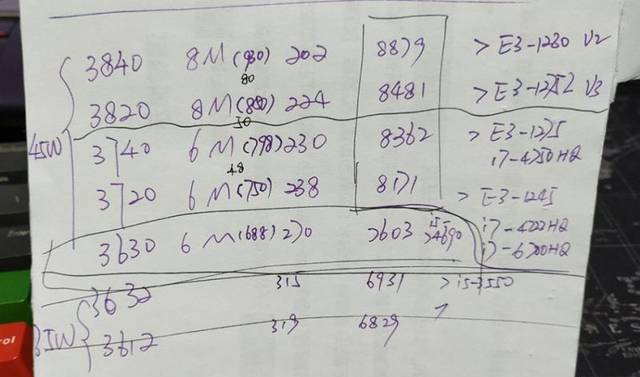 3840 8M (930) 202 8879 > E3-1230 V2
80
3820 8M (880) 224 8481 > E3-1252 V3
50
45W 3740 6M (798) 230 8362 > E3-1275
i7-4750HQ
48
3720 6M (750) 238 8171 > E3-1245
3630 6M (688) 270 7603 i5-4690 i7-4722HQ
i7-6700HQ
3632 315 6931 > i5-3550
35W 3612 319 6829
rol